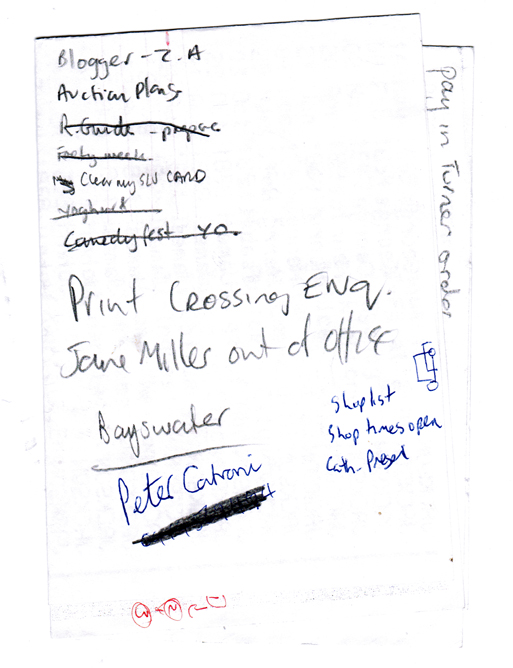 Blogger - Z.A
Auction Plans
R.Guide - prepare
Clear my SLV CARD
yoghurt
Comedy fest YO.
Print Crossing ENQ.
Jane Miller out of office
Bayswater
Peter Catroni
Shop list
Shop times open
Cath. Present
pay in Turner order